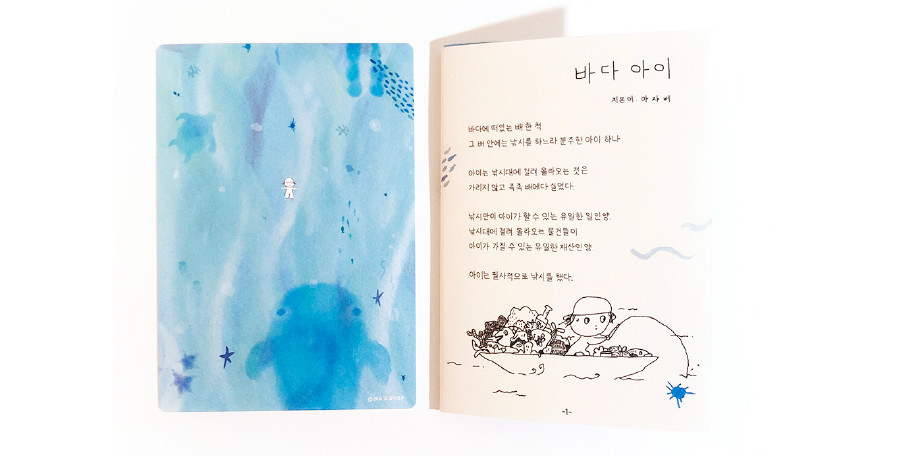 바다 아이
지은이. 마 자 버
바다에 떠있는 배 한 척
그 배 안에는 낚시를 하느라 분주한 아이 하나
아이는 낚시대에 걸려 올라오는 것은
가리지 않고 족족 배에다 실었다.
낚시만이 아이가 할 수 있는 유일한 일인양.
낚시대에 걸려 올라오는 물건들이
아이가 가질 수 있는 유일한 재산인양.
아이는 필사적으로 낚시를 했다.
-1-